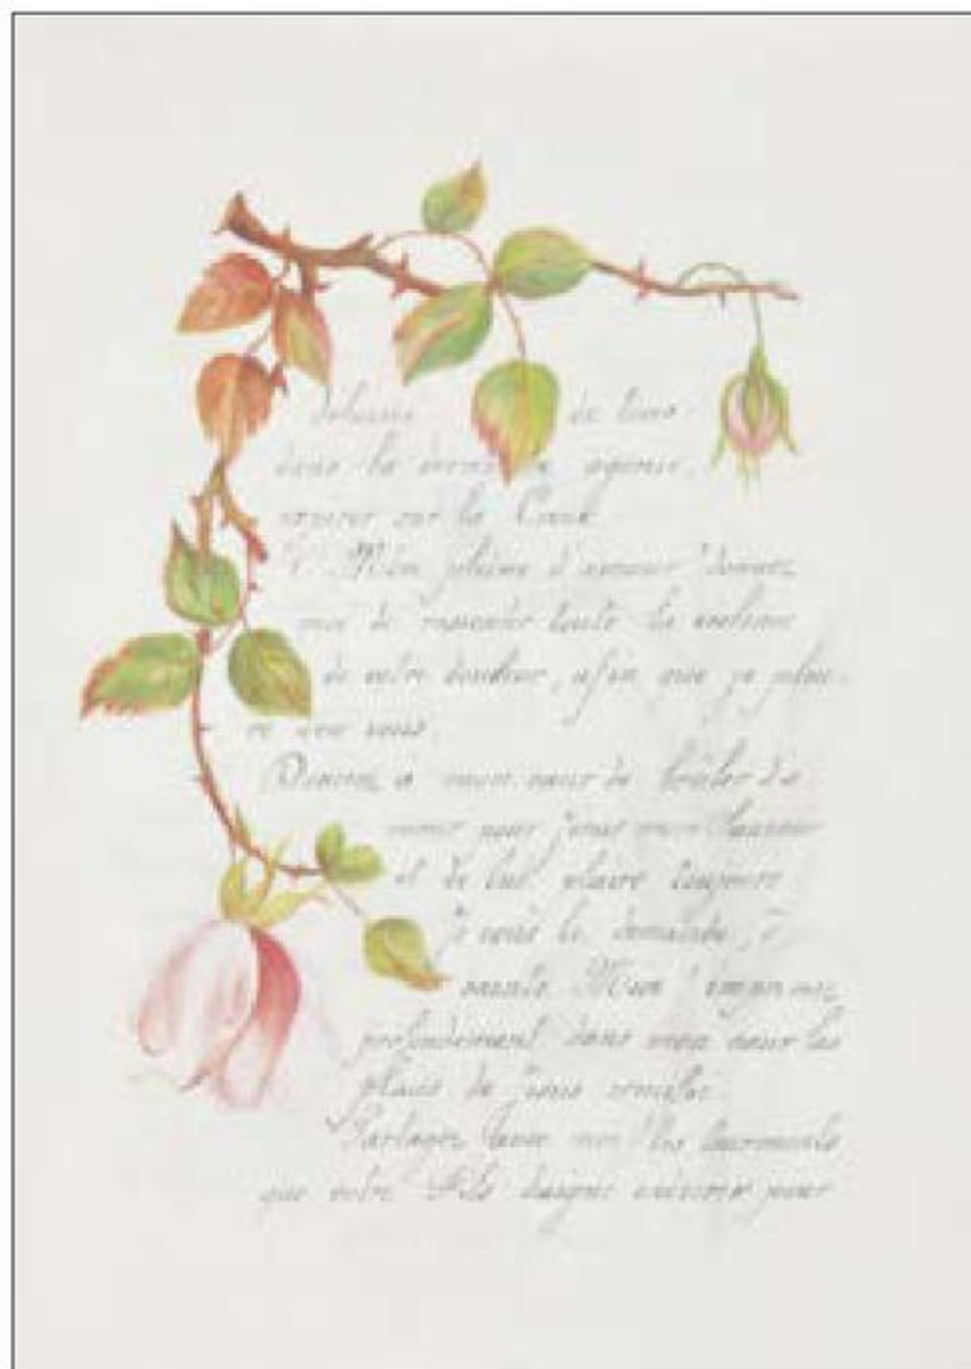 délaissé de tous
dans la dernière agonie,
expirer sur la Croix.
Ô Mère pleine d'amour ! donnez
moi de ressentir toute la violence
de votre douleur, afin que je pleu-
re avec vous.
Donnez à mon cœur de brûler d'a
mour pour Jésus mon Sauveur
et de lui plaire toujours
Je vous le demande, ô
sainte Mère ! imprimez
profondément dans mon cœur les
plaies de Jésus crucifié.
Partagez avec moi les tourments
que votre Fils daigna endurer pour